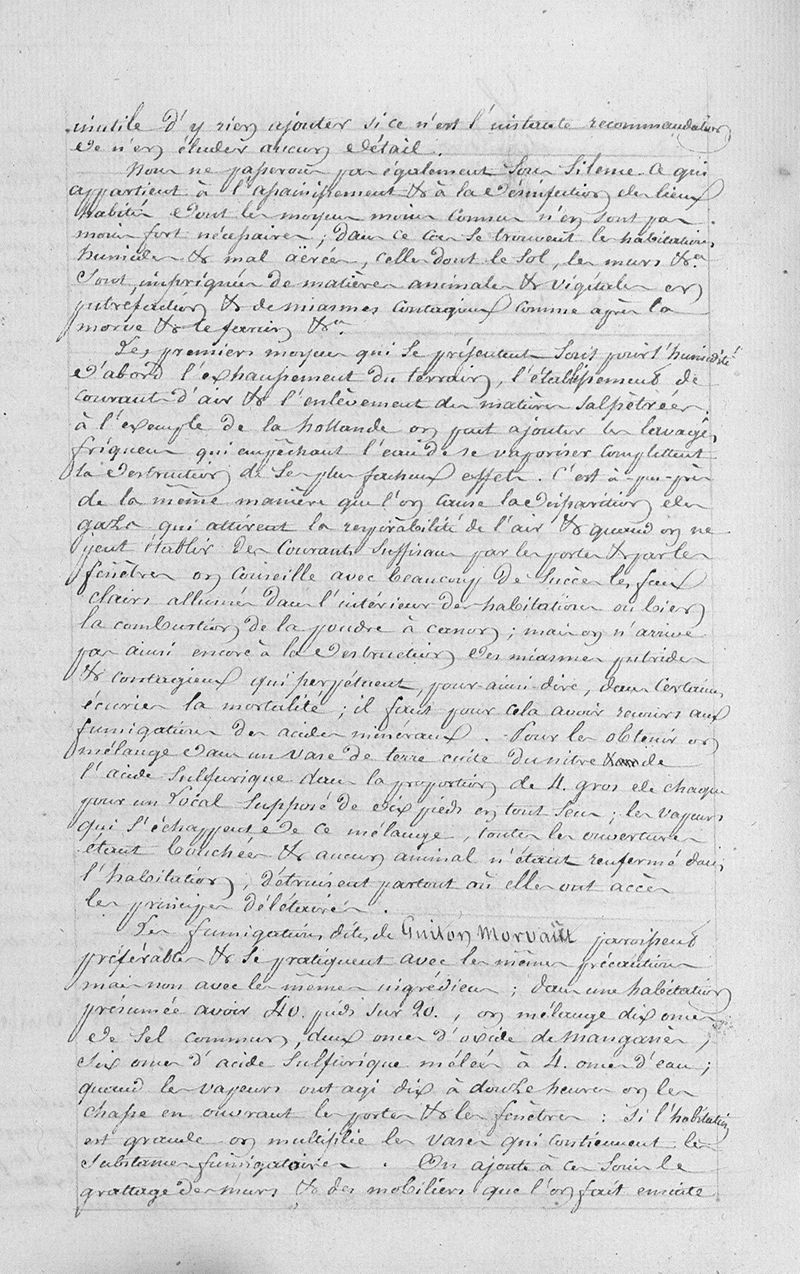 inutile d'y rien ajouter si ce n'est l'instante recommandation
de n'en éluder aucun détail.
Nous ne passerons pas également sous silence ce qui
appartient à l'assainissement & à la désinfection des lieux
habités dont les moyens moins connus n'en sont pas
moins fort nécessaires ; dans ce cas se trouvent les habitations
humides & mal aërées, celles dont le sol, les murs &a
sont imprignés de matières animales & végétales en
putréfaction & de miasmes contagieux comme après la
morve & le farcin &a.
Les premiers moyens qui se présentent sont pour l'humidité
d'abord l'exhaussement du terrain, l'établissement de
courants d'air & l'enlèvement des matières salpêtrées.
à l'exemple de la hollande on peut ajouter les lavages
friqueus qui empêchant l'eau de se vaporiser complettent
la destruction de ses plus facheux effets. C'est à-peu-près
de la même manière que l'on cause la disparition des
gazs qui altèrent la respirabilité de l'air & quand on ne
peut établir des courants suffisans par les portes & par les
fenêtres on conseille avec beaucoup de succès les feux
clairs allumés dans l'intérieur des habitations ou bien
la combustion de la poudre à canon ; mais on n'arrive
pas ainsi encore à la destruction des miasmes putrides
& contagieux qui perpétuent, pour-ainsi-dire, dans certains
écuries la mortalité ; il faut pour cela avoir recours aux
fumigations des acides minéraux. Pour les obtenir on
mélange dans un vase de terre cuite du nitre & de
l'acide sulfurique dans la proportion de 4. gros de chaque
pour un local supposé de dix pieds en tout sens ; les vapeurs
qui s'échappent de ce mélange, toutes les ouvertures
étant bouchées & aucun animal n'étant renfermé dans
l'habitation, détruisent partout où elles ont accès
les principes délétaires.
Les fumigations dites de Guiton Morvault paroissent
préférables & se pratiquent avec les mêmes précautions
mais non avec les mêmes ingrédiens ; dans une habitation
présumée avoir 40. pieds sur 20., on mélange dix onces
de sel commun, deux onces d'oxide de manganèse,
six onces d'acide sulfurique mêlées à 4. onces d'eau ;
quand les vapeurs ont agi dix à douze heures on les
chasse en ouvrant les portes & les fenêtres : si l'habitation
est grande on multiplie les vases qui contiennent les
substances fumigatoires. On ajoute à ces soins le
grattage des murs & des mobiliers que l'on fait ensuite